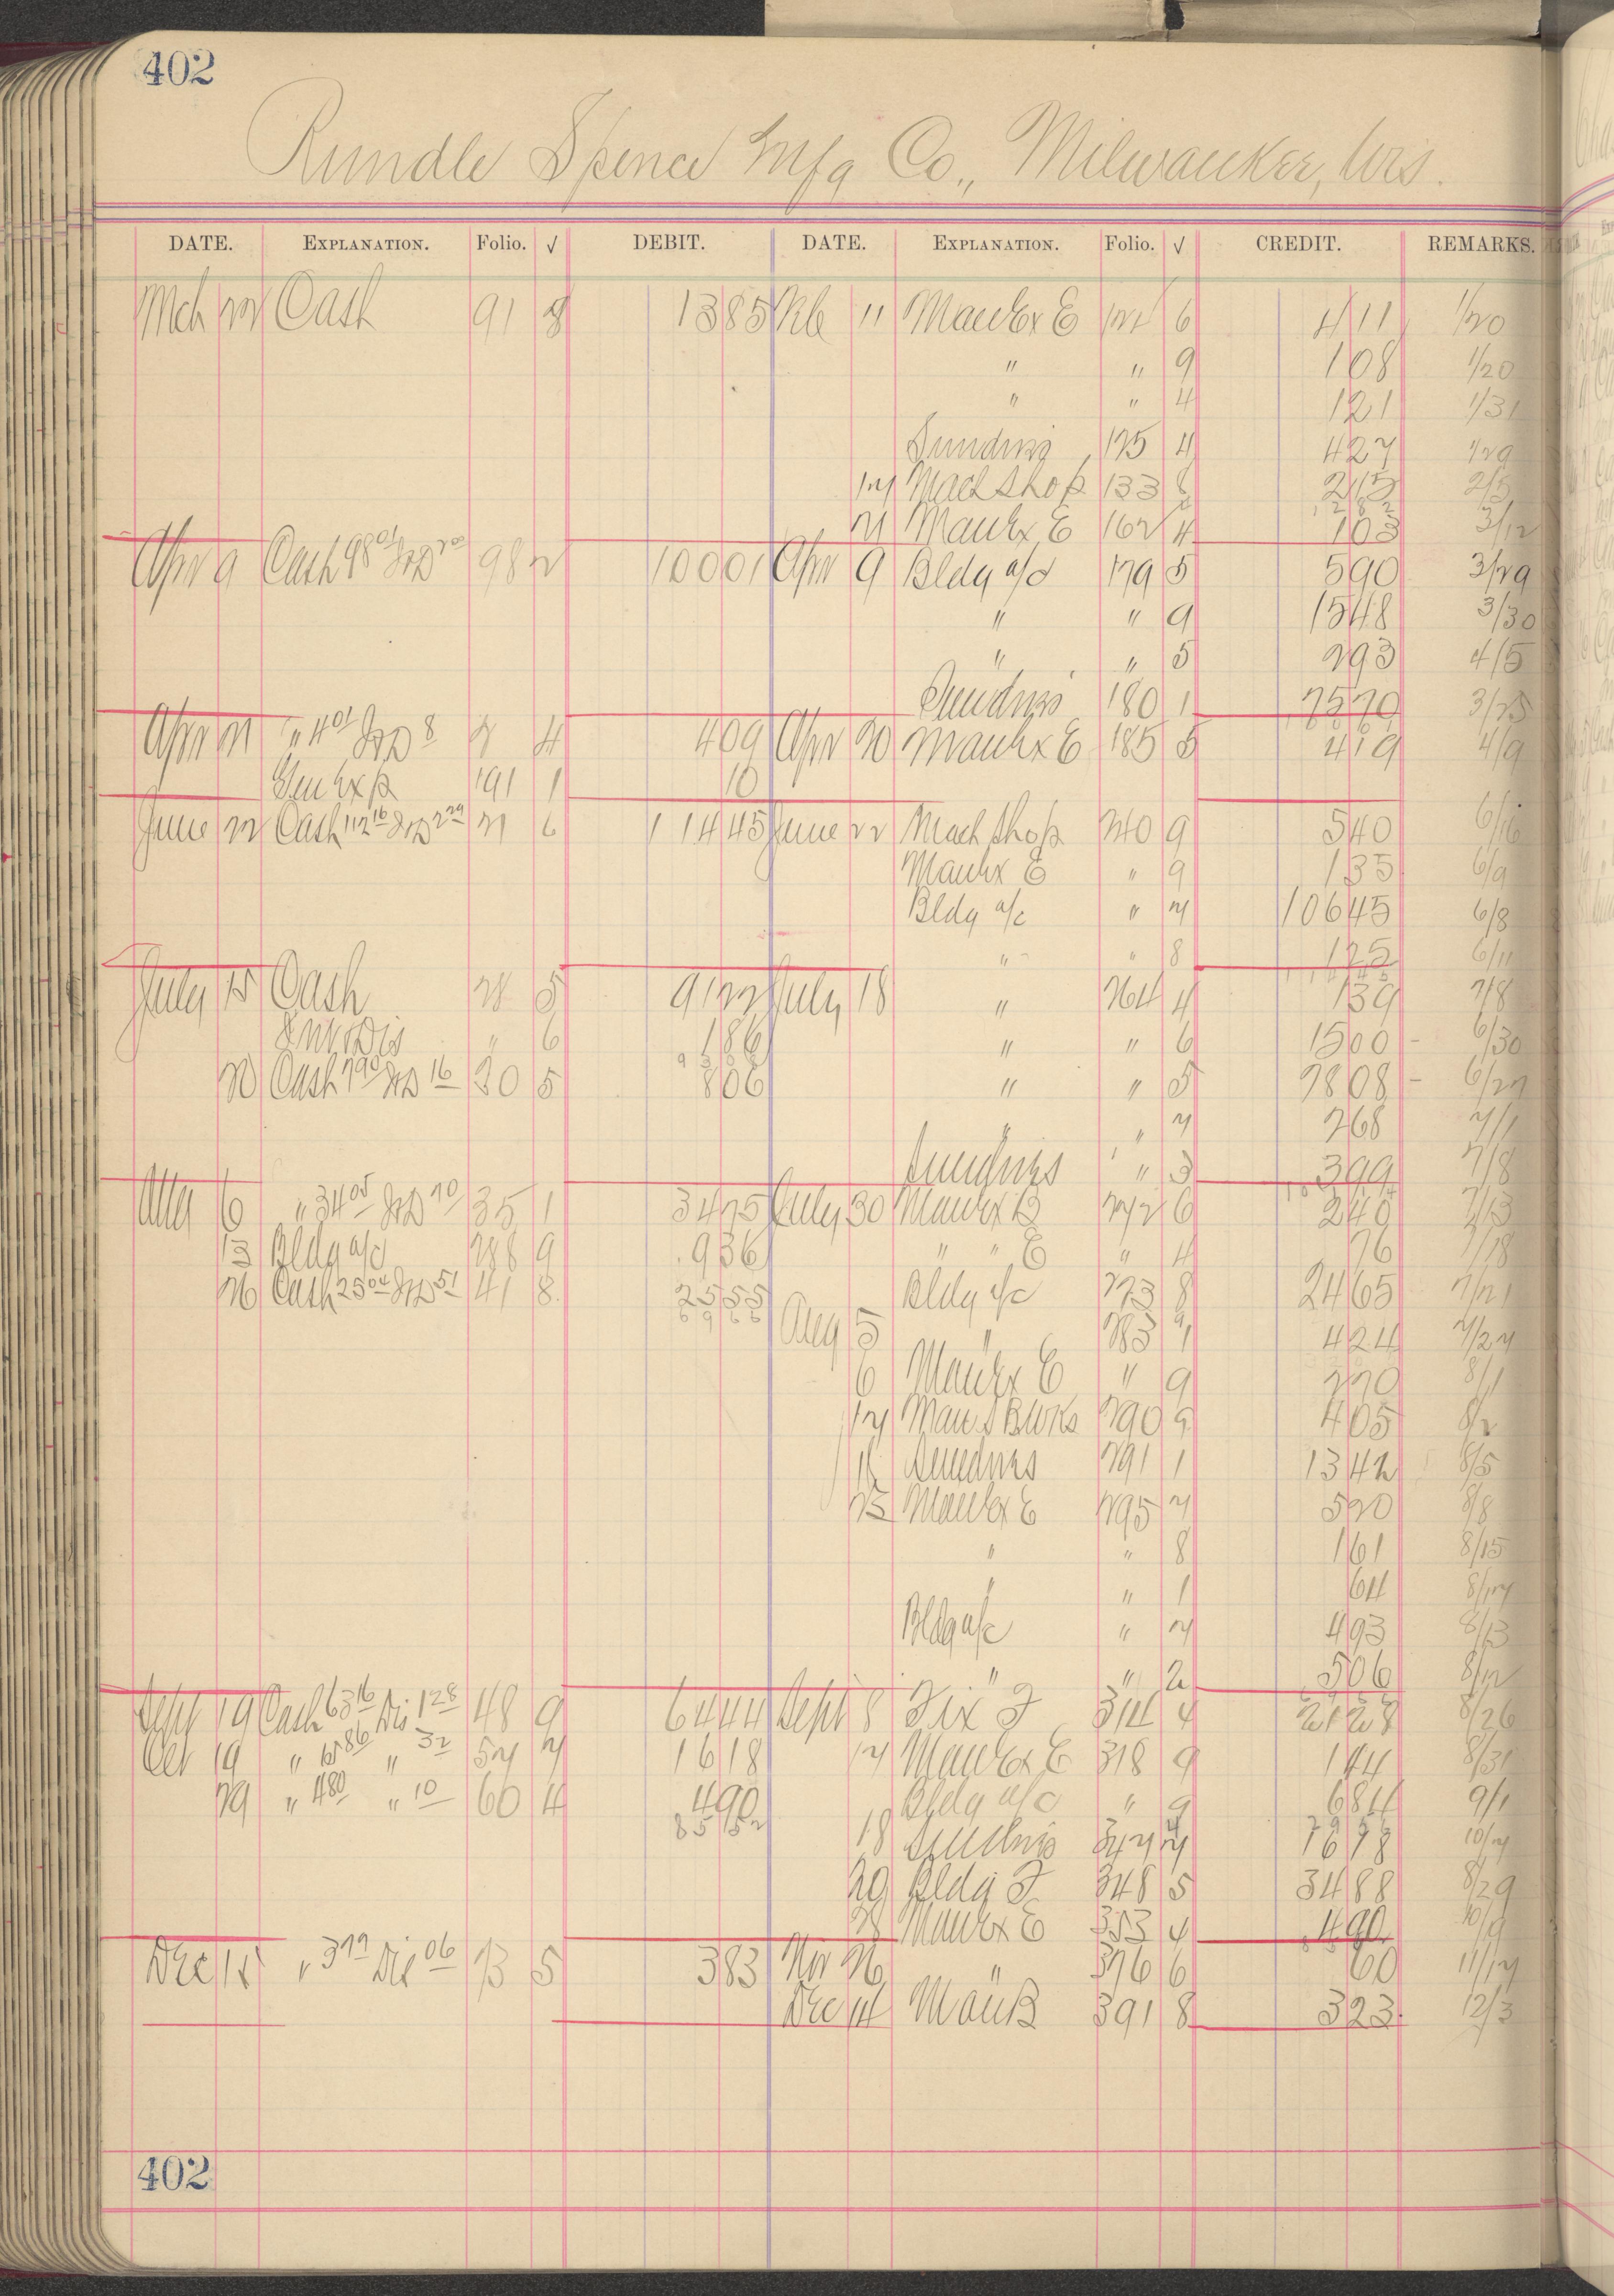 402
Rundle Spence Mfg Co., Milwaukee, Wis.
DATE. EXPLANATION. Folio. √ DEBIT. DATE. EXPLANATION. Folio. √ CREDIT. REMARKS.
Mch 22 Cash 91 8 1385 Feb 11 Manex E 121 6 411 1/20
" " 9 108 1/20
" " 4 121 1/31
Sundries 125 4 427 1/29
14 Mach Shop 133 215 2/5
21 Manex E 162 4 103 3/12
Apr 9 Cash 98 01 98 2 10001 Apr 9 Bldg a/c 179 5 590 3/29
" " 9 1548 3/30
" " 5 293 4/5
Sundries 180 1 7570 3/25
Apr 21 " 4 01 8 2 4 409 Apr 20 Manex E 185 5 419 4/9
Gen Exp 191 1 10
June 22 Cash 112 16 2 29 21 6 11445 June 22 Mach Shop 240 9 540 6/16
Manex E " 9 135 6/9
Bldg a/c " 7 10645 6/8
" " 8 125 6/11
July 15 Cash 28 5 9122 July 18 " 264 4 139 7/8
" 6 186 " " 6 1500 6/30
20 Cash 7 90 16 30 5 806 " " 5 7808 6/27
" " 7 268 7/1
Sundries " 3 399 7/8
Aug 6 " 34 05 70 35 1 3475 July 30 Manex B 272 6 240 7/13
13 Bldg a/c 288 9 936 " " E " 4 76 7/18
26 Cash 25 04 51 41 8 2555 Bldg a/c 273 8 2465 7/21
6966
Aug 5 " 283 1 424 7/27
6 Manex E " 9 220 8/1
14 290 9 405 8/2
16 Sundries 291 1 1342 8/5
25 Manex E 295 7 520 8/8
" " 8 161 8/15
" " 1 64 8/17
Bldg a/c " 7 493 8/13
" " 2 506 8/12
Sept 19 Cash 63 16 Dis 1 28 48 9 6444 Sept 8 Fix F 314 4 2128 8/26
Oct 19 " 15 86 " 32 57 7 1618 14 Manex E 318 9 144 8/31
29 " 4 80 " 10 60 4 490 Bldg a/c " 9 684 9/1
8552
18 Sundries 347 7 1678 10/7
20 Bldg F 348 5 3488 8/29
28 Manex E 353 4 490 10/9
Dec 15 " 3 77 Dis 06 73 5 383 Nov 26 " 376 6 60 11/17
Dec 14 Man B 391 8 323 12/3
402